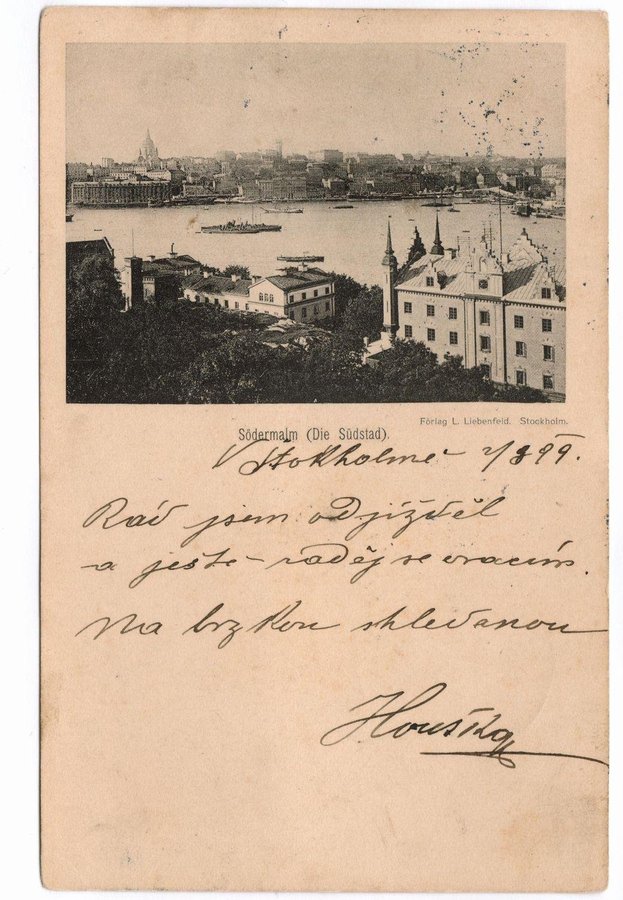 Förlag L. Liebenfeld. Stockholm.
Södermalm (Die Südstad).
V Štokholmě 2/8 99.
Rád jsem odjížděl
a ještě raděj se vracím.
Na brzkou shledanou
Houška